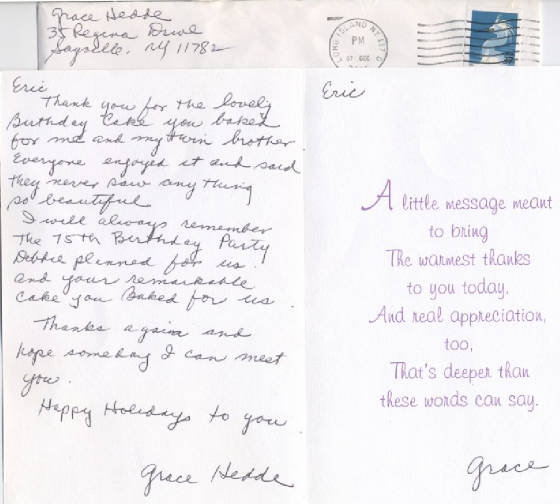 Grace Hedde
35 Regina Drive
Sayville, NY 11782
LONG ISLAND NY 117
PM
37
Eric
Thank you for the lovely
Birthday Cake you baked
for me and my twin brother
Everyone enjoyed it and said
they never saw any thing
so beautiful
I will always remember
The 75th Birthday Party
Debbie planned for us.
and your remarkable
Cake you Baked for us.
Thanks again and
hope someday I can meet
you.
Happy Holidays to you
Grace Hedde
Eric
A little message meant
to bring
The warmest thanks
to you today,
And real appreciation,
too,
That's deeper than
these words can say.
Grace